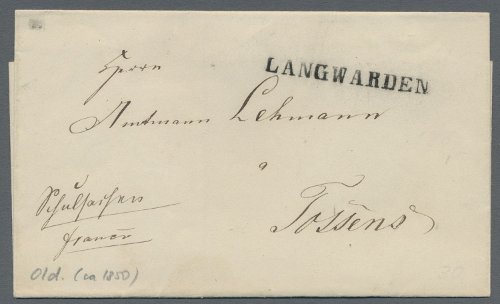 LANGWARDEN
Herrn
Amtmann Lehmann
a
Tossens
Schulsachen
franco
Old. (ca 1850)